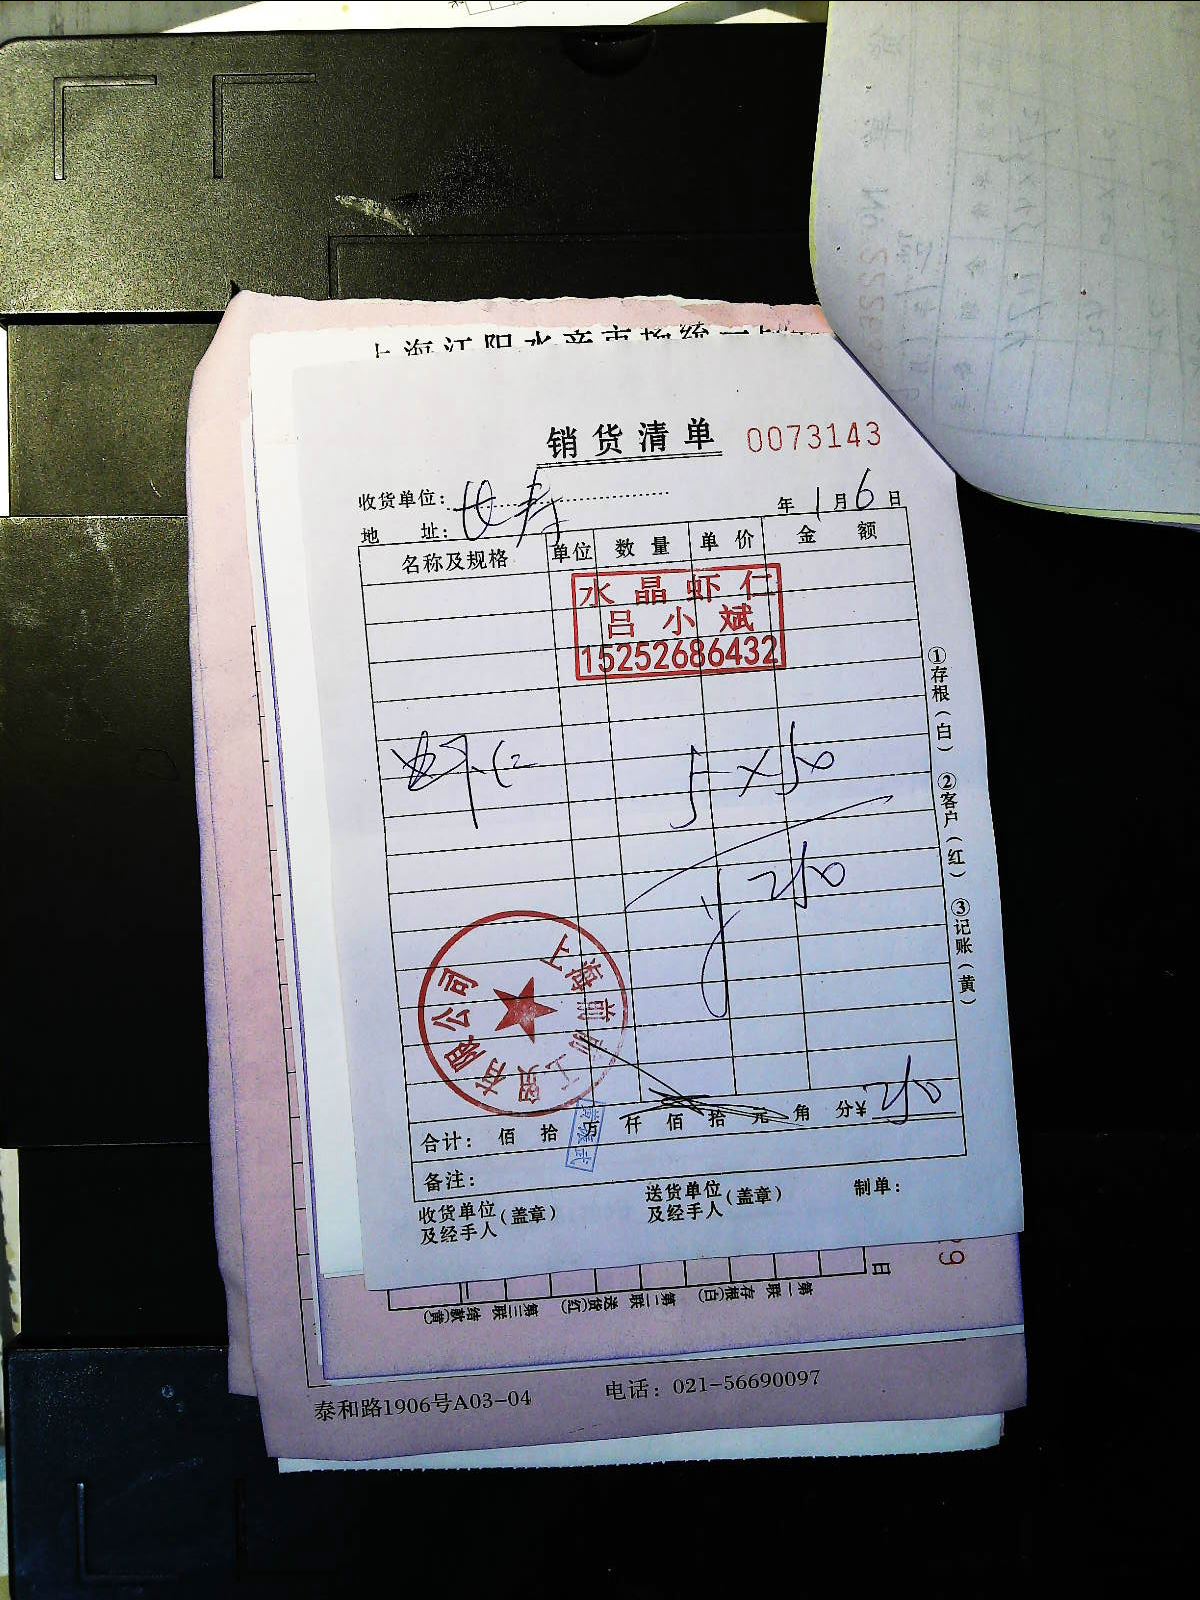 上海江阳水产市场统一
销货清单 0073143
收货单位: 世寿
年 1 月 6 日
地 址:
名称及规格 单位 数量 单价 金额
水晶虾仁
吕小斌
15252686432
虾仁 5×50
¥250
上海前前工贸有限公司
合计: 佰 拾 万 仟 佰 拾 元 角 分¥ 250
备注:
收货单位及经手人(盖章) 送货单位及经手人(盖章) 制单:
①存根(白) ②客户(红) ③记账(黄)
日
第一联 存根(白) 第二联 送货(红) 第三联 结款(黄)
泰和路1906号A03-04 电话: 021-56690097